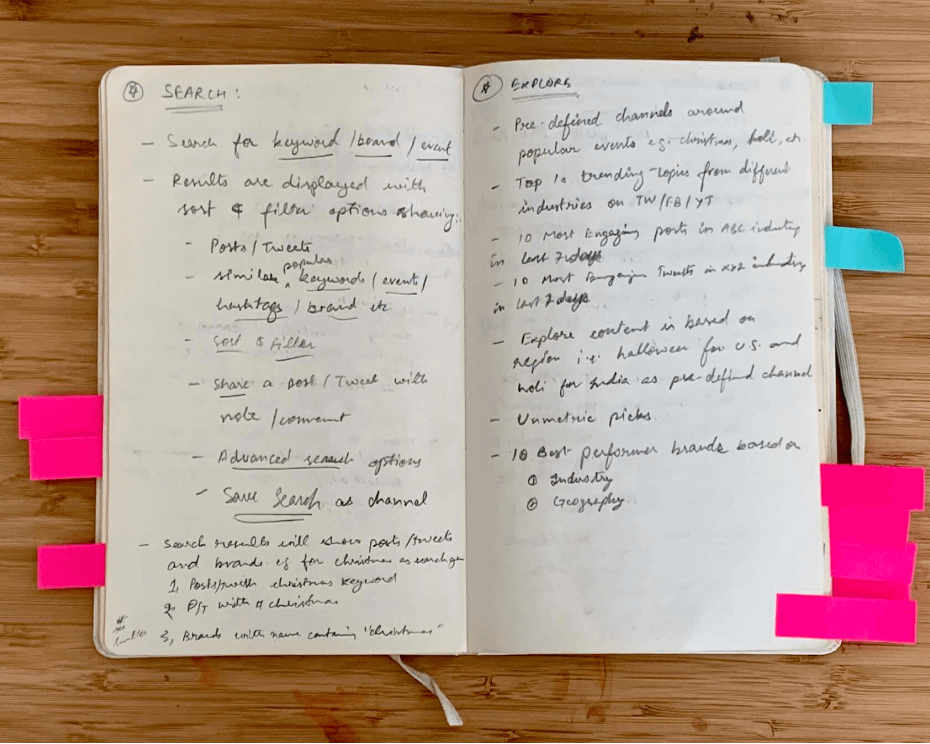 SEARCH:
- Search for keyword / brand / event
- Results are displayed with
sort & filter options showing:
- Posts / Tweets
popular
- similar ^ keywords / events /
hashtags / brand etc
- Sort & Filter
- Share a post / Tweet with
note / comment
- Advanced search options
- Save Search as channel
- Search results will show posts / tweets
and brands. eg. for christmas as search
1, Posts/T with christmas keyword
2, P/T with # christmas
3, Brands with name containing "christmas"
EXPLORE
- Pre-defined channels around
popular events e.g. christmas, holi, etc.
- Top 10 trending-topics from different
industries on TW/FB/YT
- 10 Most Engaging posts in ABC industry
in last 7 days
- 10 Most Engaging Tweets in XYZ industry
in last 7 days
- Explore content is based on
region i.e. halloween for U.S. and
holi for India as pre-defind channel
- Unmetric picks.
- 10 Best performer brands based on
① Industry
② Geography